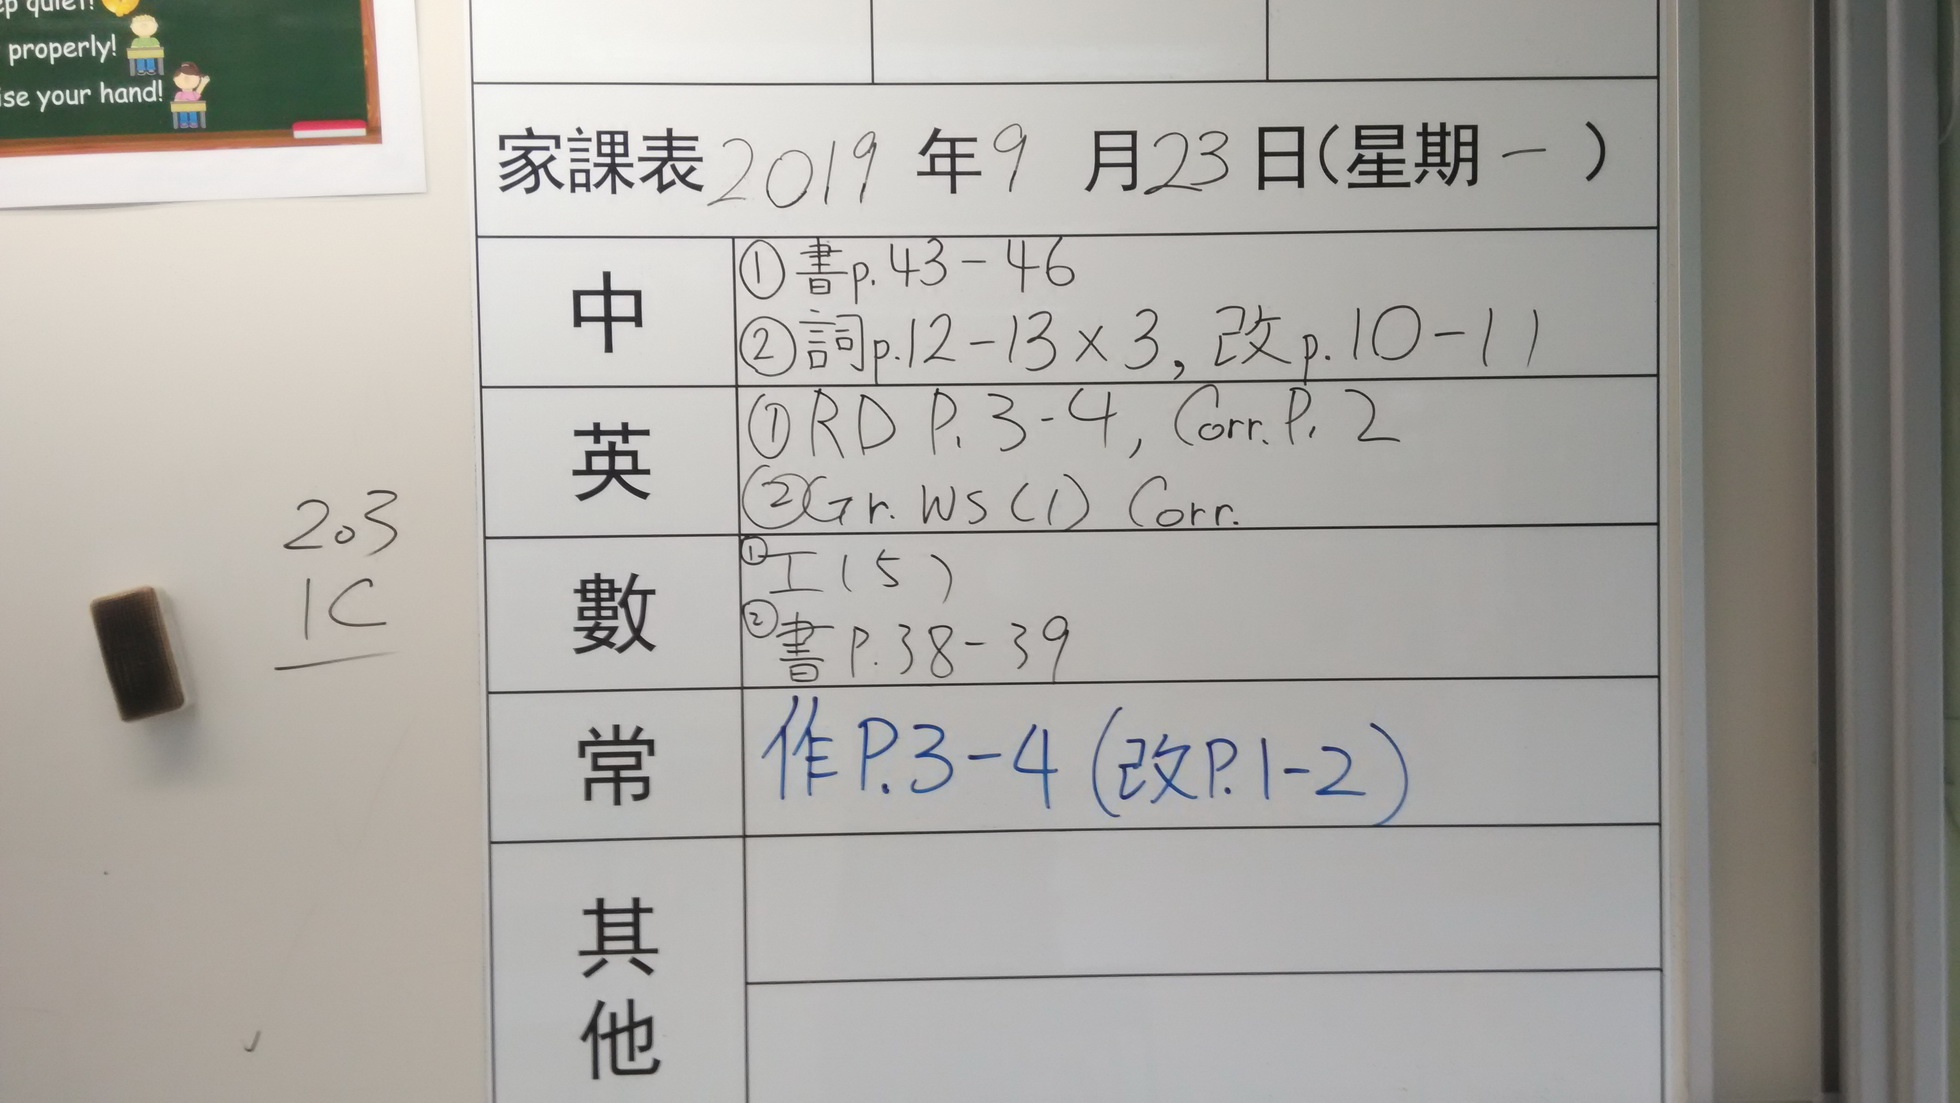 quiet!
properly!
your hand!
家課表 2019 年 9 月 23 日(星期一)
中
① 書p.43-46
② 詞p.12-13×3, 改p.10-11
英
① RD P.3-4, Corr. P.2
② Gr. WS (1) Corr.
數
① 工(5)
② 書 P.38-39
常
作P.3-4 (改P.1-2)
其他
203
1C